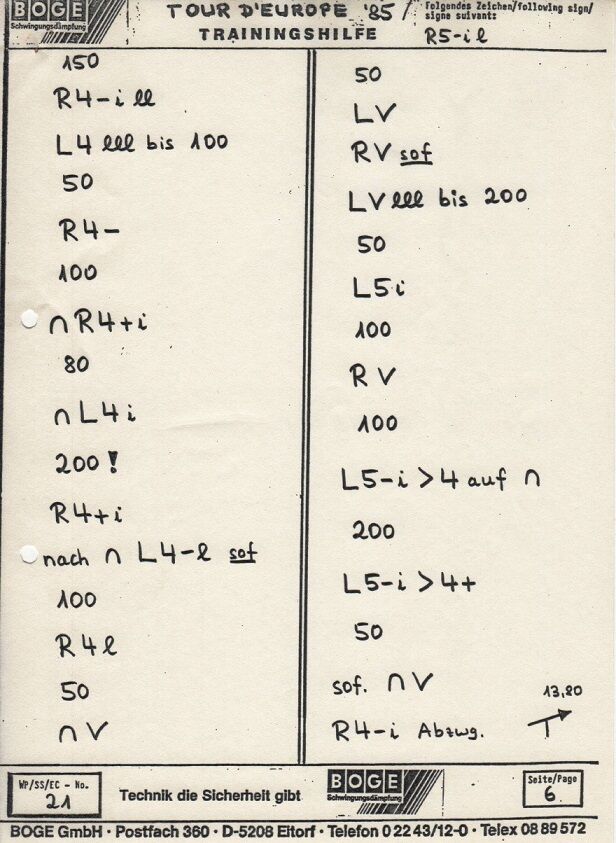 BOGE
Schwingungsdämpfung
TOUR D'EUROPE '85
TRAININGSHILFE
folgendes Zeichen/following sign/
signe suivant:
R5-il
150
R4-ill
L4lll bis 100
50
R4-
100
∩R4+i
80
∩L4i
200!
R4+i
nach ∩ L4-l sof
100
R4l
50
∩V
50
LV
RV sof
LVlll bis 200
50
L5i
100
RV
100
L5-i>4 auf ∩
200
L5-i>4+
50
sof. ∩V
13,20
R4-i Abzwg.
WP/SS/EC - No.
21
Technik die Sicherheit gibt
BOGE
Schwingungsdämpfung
Seite/Page
6
BOGE GmbH · Postfach 360 · D-5208 Eitorf · Telefon 0 22 43/12-0 · Telex 08 89 572